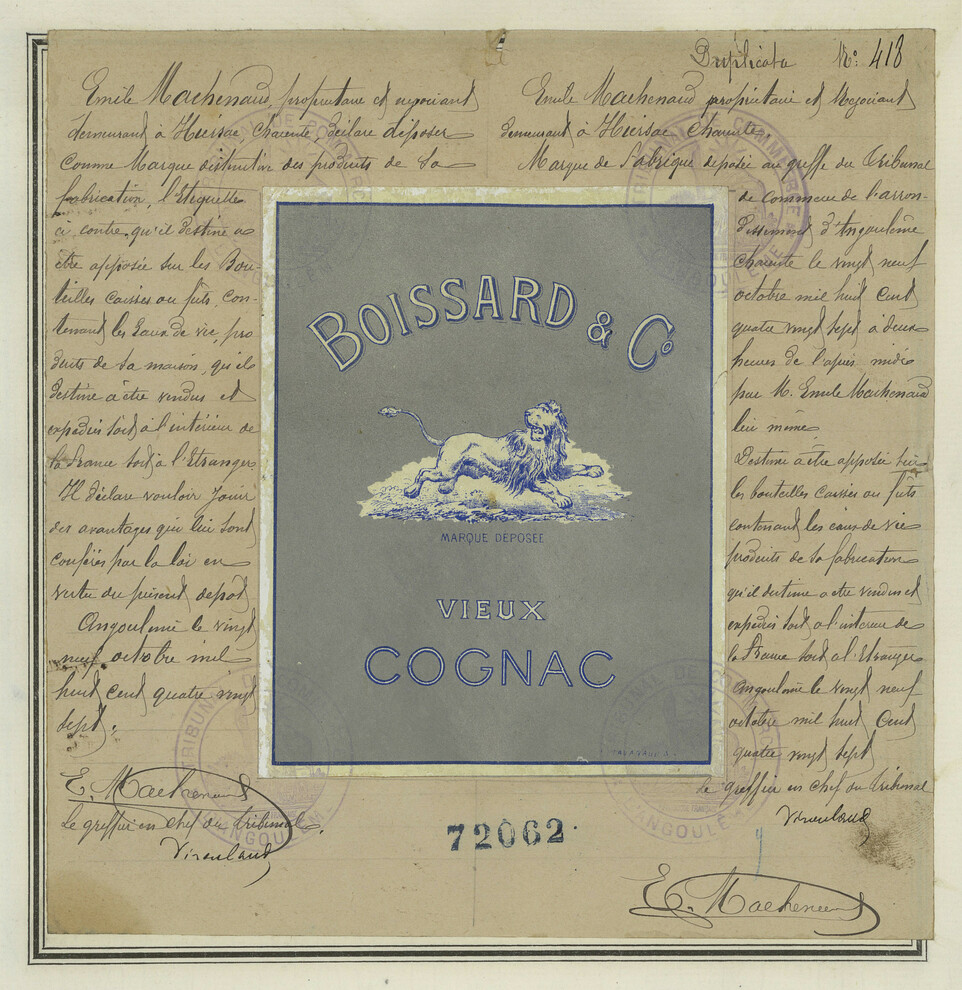 Duplicata N°: 418
Emile Machenaud, propriétaire et négociant
demeurant à Hiersac, Charente, déclare déposer
comme Marque distinctive des produits de sa
fabrication, l'Etiquette
ci contre, qu'il destine a
être apposée sur les Bou-
teilles caisses ou futs, con-
tenant les Eaux de vie, pro
duits de sa maison, qu'il
destine à être vendus et
expediés soit à l'intérieur de
la France soit à l'Etranger
Il déclare vouloir Jouir
des avantages qui lui sont
conférés par la loi en
vertu du présent depot
Angoulême le vingt
neuf octobre mil
huit cent quatre vingt
sept.
E. Machenaud
Le greffier en chef du tribunal.
Emile Machenaud propriétaire et Négociant
demeurant à Hiersac Charente.
Marque de Fabrique deposée au greffe du Tribunal
de Commerce de l'arron-
dissement d'Angoulême
Charente le vingt neuf
octobre mil huit cent
quatre vingt sept à deux
heures de l'après midi
par M. Emile Machenaud
lui même
Destiné a être apposée sur
les bouteilles caisses ou futs
contenant les eaux de vie
produits de sa fabrication
qu'il destine a etre vendus et
expediés soit a l'interieur de
la France soit a l'Etranger
Angoulême le vingt neuf
octobre mil huit Cent
quatre vingt sept
le greffier en chef du Tribunal
E. Machenaud
BOISSARD & Co
MARQUE DEPOSÉE
VIEUX
COGNAC
72062